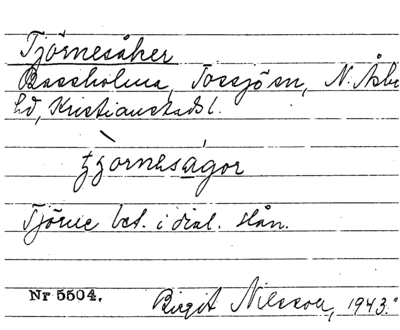 Tjörnesåker
Bassholma, Tossjö sn, N. Åsbo
hd, Kristianstads l.
tjö̀rnesågor
Tjörne bet. i dial. slån.
Nr 5504.
Birgit Nilsson, 1943.